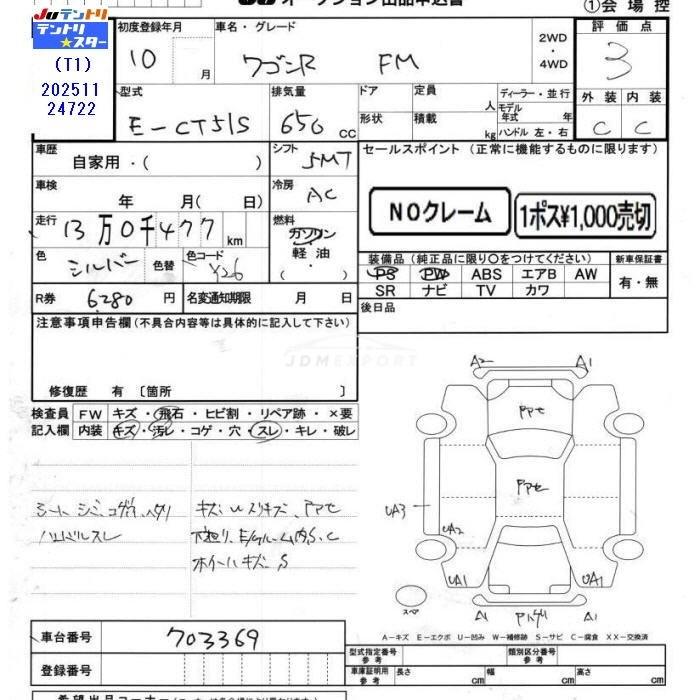 JU オークション出品申込書
①会場控
JUテントリ
テントリ★スター
(T1)
202511
24722
初度登録年月
10 月
車名・グレード
ワゴンR FM
2WD
・
4WD
評価点
3
型式
E-CT51S
排気量
650 cc
ドア
形状
定員 人
積載 kg
ディーラー・並行
モデル年式 年
ハンドル 左・右
外装 内装
C C
車歴
自家用・( )
シフト
5MT
セールスポイント (正常に機能するものに限ります)
NOクレーム
1ポス¥1,000売切
車検
年 月( 日)
冷房
AC
走行
13万0千477km
燃料
ガソリン
軽油
( ・ )
色
シルバー
色替
色コード
Y26
装備品 (純正品に限り○をつけてください)
PS PW ABS エアB AW
SR ナビ TV カワ
新車保証書
有・無
R券
6280円
名変通知期限 月 日
後日品
注意事項申告欄 (不具合内容等は具体的に記入して下さい)
JDMEXPORT
修復歴 有 〔箇所 〕
検査員記入欄
FW キズ・飛石・ヒビ割・リペア跡・×要
内装 キズ・汚レ・コゲ・穴・スレ・キレ・破レ
シート シミ、コゲ穴、ヘタリ
ハンドルスレ
キズ U スリキズ、Pアセ
下廻り、E/ルーム内S、C
ホイールキズ、S
A2 A1
Pアセ
Pアセ
UA3
UA2
UA1
UA1
スペア
A1
A1
A-キズ E-エクボ U-凹み W-補修跡 S-サビ C-腐食 XX-交換済
車台番号
703369
登録番号
型式指定番号 参考
類別区分番号 参考
車庫証明用 参考
長さ cm 幅 cm 高さ cm